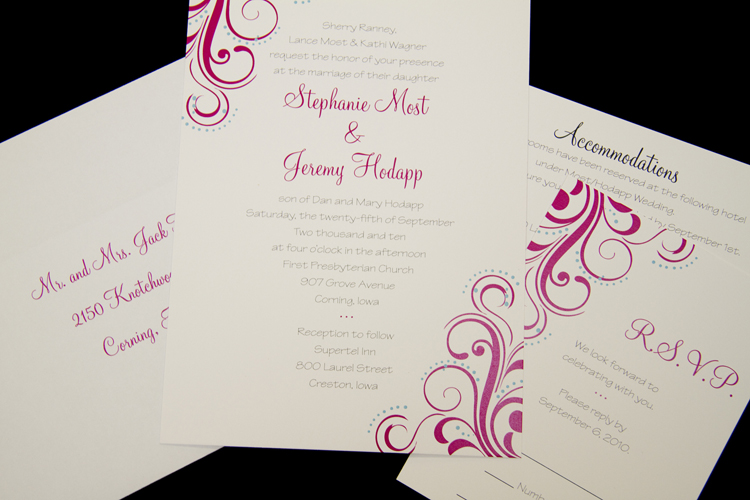 Sherry Ranney,
Lance Most & Kathi Wagner
request the honor of your presence
at the marriage of their daughter
Stephanie Most
&
Jeremy Hodapp
son of Dan and Mary Hodapp
Saturday, the twenty-fifth of September
Two thousand and ten
at four o'clock in the afternoon
First Presbyterian Church
907 Grove Avenue
Corning, Iowa
Reception to follow
Supertel Inn
800 Laurel Street
Creston, Iowa
Mr. and Mrs. Jack
2150
Corning,
Accommodations
have been reserved at the following hotel
under Most/Hodapp Wedding.
by September 1st.
R.S.V.P.
We look forward to
celebrating with you.
Please reply by
September 6, 2010.